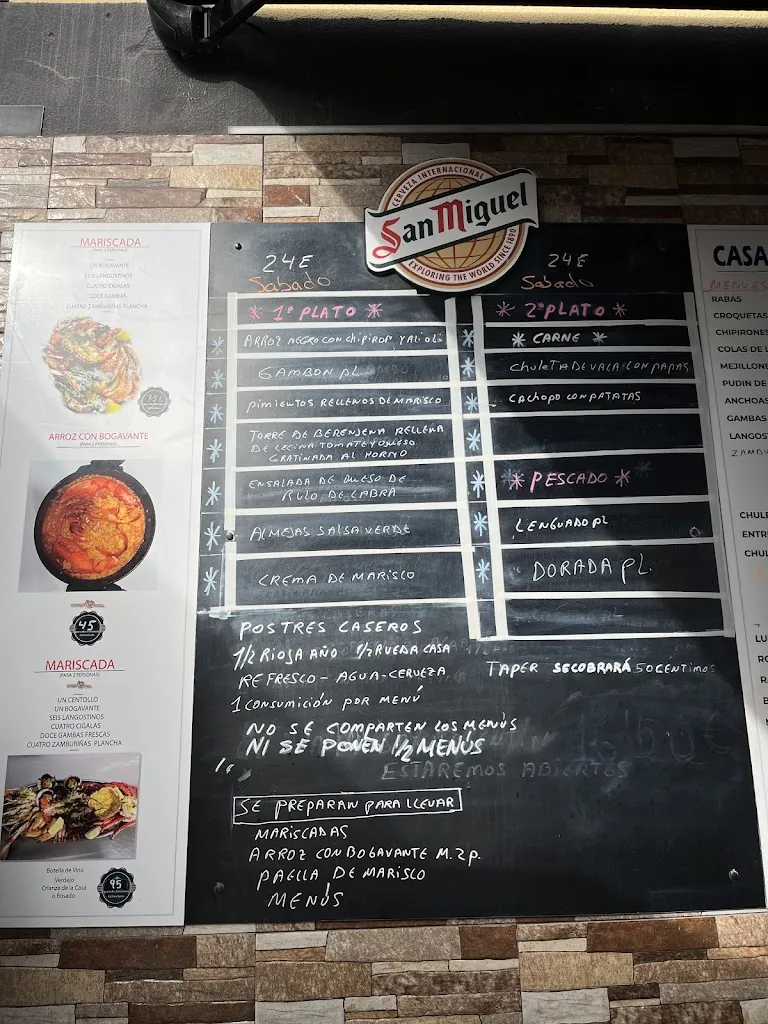 CERVEZA INTERNACIONAL
San Miguel
EXPLORING THE WORLD SINCE 1890
MARISCADA
(PARA 2 PERSONAS)
UN BOGAVANTE
SEIS LANGOSTINOS
CUATRO CIGALAS
DOCE GAMBAS
CUATRO ZAMBURIÑAS PLANCHA
75€
ARROZ CON BOGAVANTE
(PARA 2 PERSONAS)
45
MARISCADA
(PARA 2 PERSONAS)
UN CENTOLLO
UN BOGAVANTE
SEIS LANGOSTINOS
CUATRO CIGALAS
DOCE GAMBAS FRESCAS
CUATRO ZAMBURIÑAS PLANCHA
Botella de Vino
Verdejo
Crianza de la Casa
o Rosado
95
24E
Sabado
* 1º PLATO *
ARROZ NEGRO CON CHIPIRON Y ALIOLI
GAMBON PL
PIMIENTOS RELLENOS DE MARISCO
TORRE DE BERENJENA RELLENA
DE CECINA TOMATE Y QUESO
GRATINADA AL HORNO
ENSALADA DE QUESO DE
RULO DE CABRA
ALMEJAS SALSA VERDE
CREMA DE MARISCO
24E
Sabado
* 2º PLATO *
* CARNE *
CHULETA DE VACA CON PAPAS
CACHOPO CON PATATAS
* PESCADO *
LENGUADO PL
DORADA PL.
POSTRES CASEROS
1/2 RIOJA AÑO 1/2 RUEDA CASA
REFRESCO - AGUA - CERVEZA
1 CONSUMICIÓN POR MENÚ
TAPER SE COBRARÁ 50 CENTIMOS
NO SE COMPARTEN LOS MENÚS
NI SE PONEN 1/2 MENÚS
16'50€
ESTAREMOS ABIERTOS
SE PREPARAN PARA LLEVAR
MARISCADAS
ARROZ CON BOGAVANTE M. 2 P.
PAELLA DE MARISCO
MENÚS
CASA
MENU ES
RABAS
CROQUETAS
CHIPIRONES
COLAS DE L
MEJILLONE
PUDIN DE
ANCHOAS
GAMBAS
LANGOST
ZAMBU
CHULE
ENTRE
CHUL
LU
RO
RA